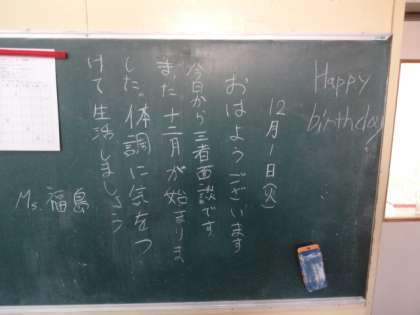 Happy
birthday
12月1日(火)
おはようございます
今日から三者面談です
また十二月が始まりま
した。体調に気をつ
けて生活しましょう
Ms. 福島